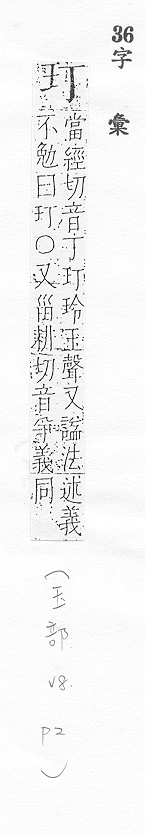 36
字彙
玎
當經切音丁玎玲玉聲又謚法述義
不勉曰玎○又甾耕切音爭義同
(玉部. V8. P2)